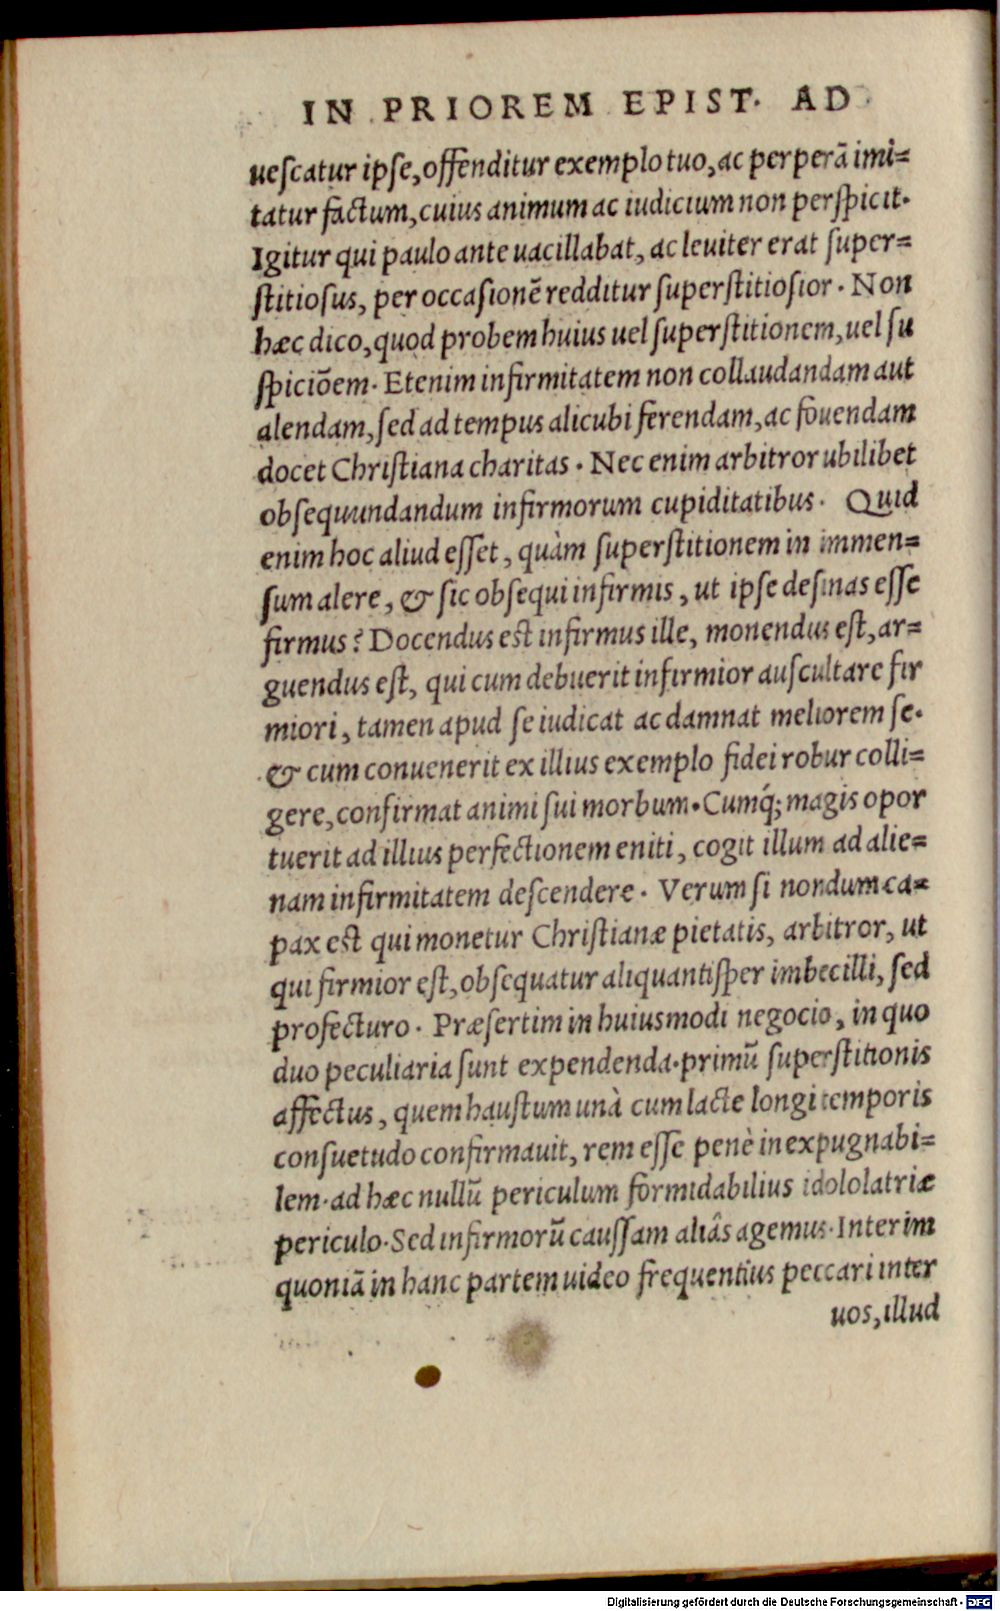 IN PRIOREM EPIST. AD
ueſcatur ipſe, offenditur exemplo tuo, ac perperã imi=
tatur factum, cuius animum ac iudicium non perſpicit.
Igitur qui paulo ante uacillabat, ac leuiter erat ſuper=
ſtitioſus, per occaſionẽ redditur ſuperſtitioſior. Non
hæc dico, quod probem huius uel ſuperſtitionem, uel ſu
ſpiciõem. Etenim infirmitatem non collaudandam aut
alendam, ſed ad tempus alicubi ferendam, ac fouendam
docet Chriſtiana charitas. Nec enim arbitror ubilibet
obſequundandum infirmorum cupiditatibus. Quid
enim hoc aliud eſſet, quàm ſuperſtitionem in immen=
ſum alere, & ſic obſequi infirmis, ut ipſe deſinas eſſe
firmus? Docendus est infirmus ille, monendus eſt, ar=
guendus eſt, qui cum debuerit infirmior auſcultare fir
miori, tamen apud ſe iudicat ac damnat meliorem ſe.
& cum conuenerit ex illius exemplo fidei robur colli=
gere, confirmat animi ſui morbum. Cumq́; magis opor
tuerit ad illius perfectionem eniti, cogit illum ad alie=
nam infirmitatem deſcendere. Verum ſi nondum ca=
pax est qui monetur Chriſtianæ pietatis, arbitror, ut
qui firmior eſt, obſequatur aliquantiſper imbecilli, ſed
profecturo. Præſertim in huiusmodi negocio, in quo
duo peculiaria ſunt expendenda. primũ ſuperſtitionis
affectus, quem hauſtum unà cum lacte longi temporis
conſuetudo confirmauit, rem eſſe penè inexpugnabi=
lem. ad hæc nullũ periculum formidabilius idololatriæ
periculo. Sed infirmorũ cauſſam aliâs agemus. Interim
quoniã in hanc partem uideo frequentius peccari inter
uos, illud
Digitalisierung gefördert durch die Deutsche Forschungsgemeinschaft - DFG